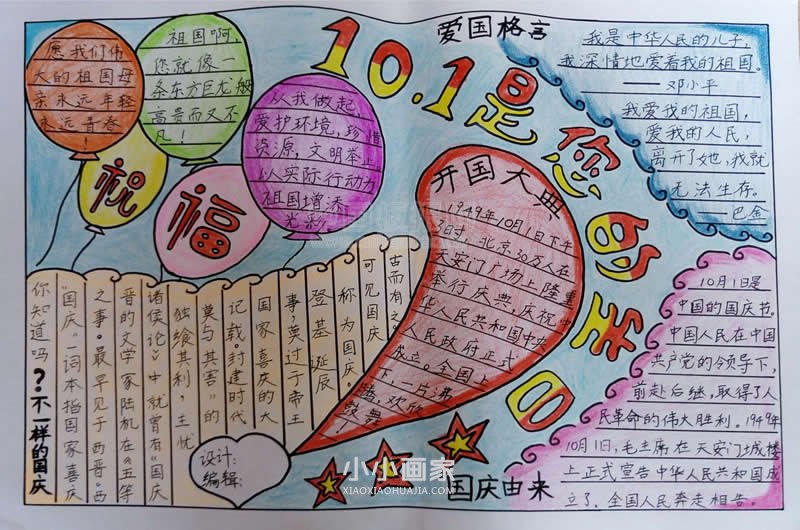 愿我们伟
大的祖国母
亲永远年轻
永远青春
!
祖国啊,
您就像一
条东方巨龙般
高贵而又不
凡!
祝
福
从我做起,
爱护环境,珍惜
资源,文明举止
以实际行动力
祖国增添
光彩.
10.1是您的生日
爱国格言
我是中华人民的儿子,
我深情地爱着我的祖国。
——邓小平
我爱我的祖国,
爱我的人民,
离开了她,我就
无法生存。
——巴金
开国大典
1949年10月1日下午
3时,北京30万人在
天安门广场上隆重
举行庆典,庆祝中
华人民共和国中央
人民政府正式
成立。全国上
下,一片沸
腾,欢欣
鼓舞!
你知道吗?不一样的国庆
“国庆”一词本指国家喜庆
之事。最早见于西晋。西
晋的文学家陆机在《五等
诸侯论》中就曾有“国庆
独飨其利,主忧
莫与其害”的
记载.封建时代
国家喜庆的大
事,莫过于帝王
登基诞辰
称为国庆。
可见国庆
古而有之。
设计:
编辑:
国庆由来
10月1日是
中国的国庆节。
中国人民在中国
共产党的领导下,
前赴后继,取得了人
民革命的伟大胜利。1949年
10月1日,毛主席在天安门城楼
上正式宣告中华人民共和国成
立了.全国人民奔走相告。
小小画家
XIAOXIAOHUAJIA.COM